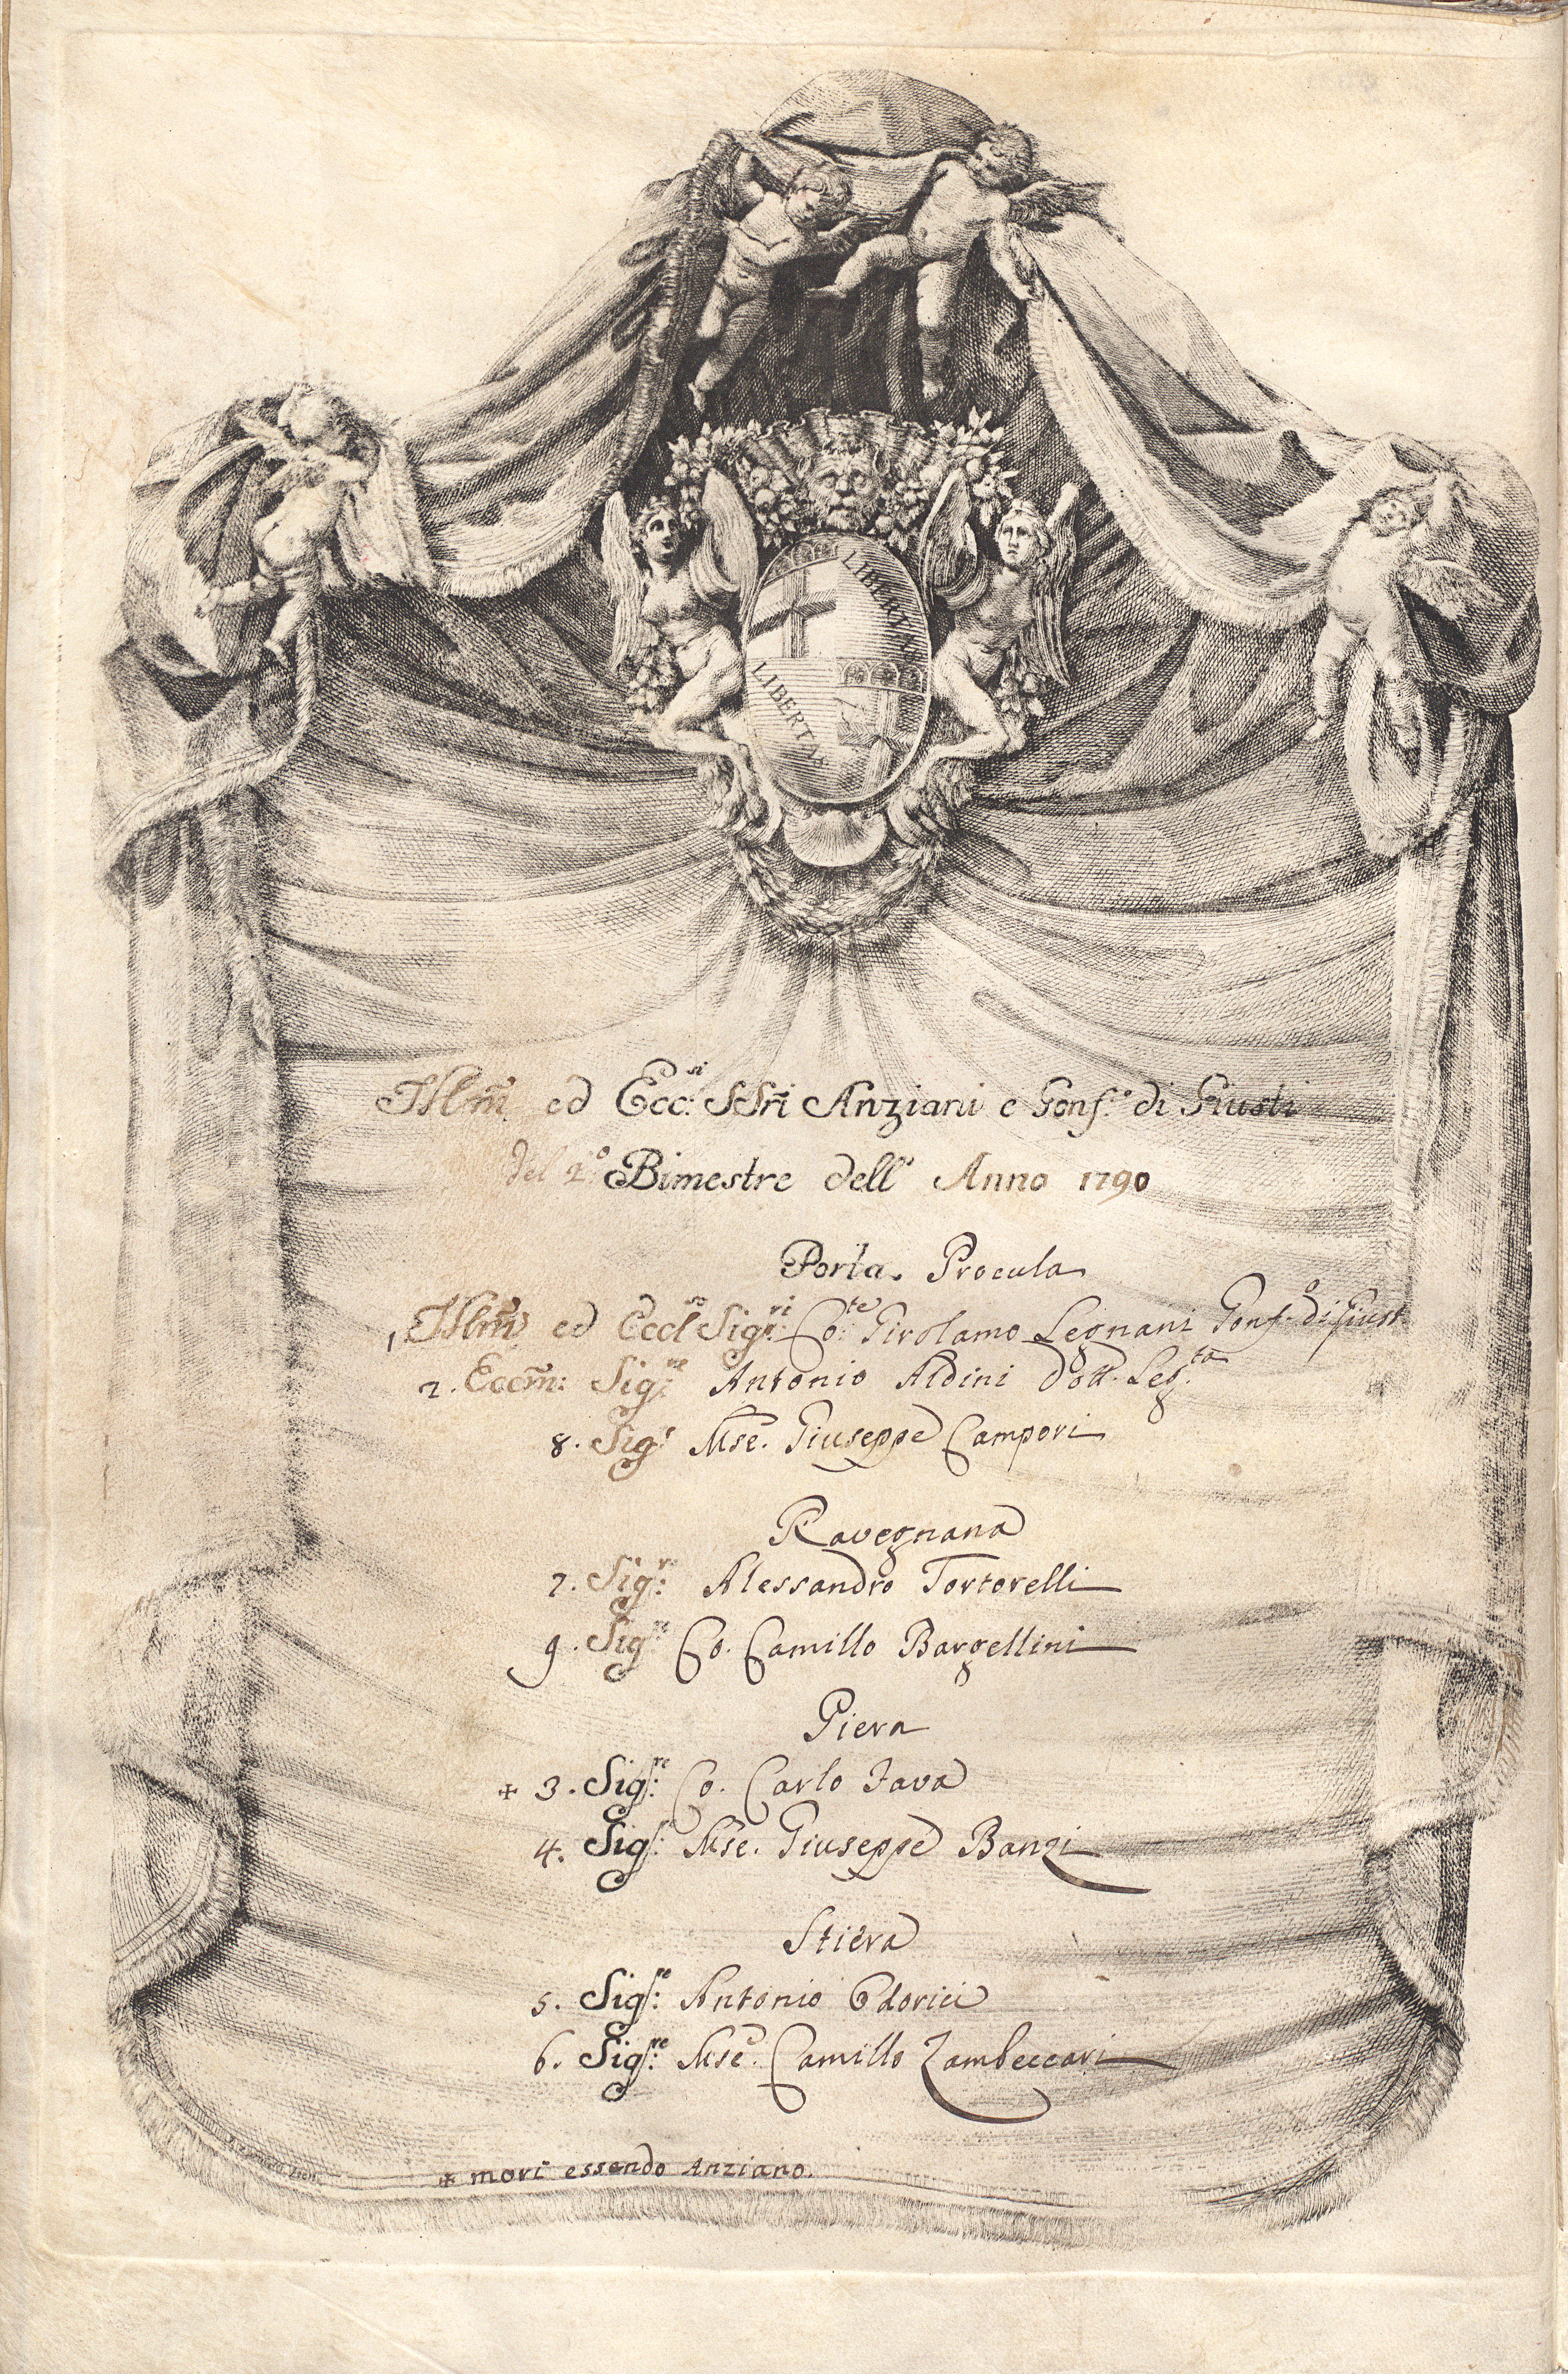 LIBERTAS
LIBERTAS
Illmi ed Ecc:si SSri Anziani e Gonf:e di Giusti
del 2.o Bimestre dell' Anno 1790
Porta Procula
1 Illmo ed Eccl:so Sig:ri Co:te Girolamo Legnani Gonf:o di Giust.
2. Eccm: Sig:re Antonio Aldini Dott. Leg:ta
8. Sig:r Mse. Giuseppe Campori
Ravegnana
7. Sig:re Alessandro Tortorelli
9. Sig:re Co. Camillo Bargellini
Piera
+ 3. Sig:re Co. Carlo Fava
4. Sig:re Mse. Giuseppe Banzi
Stiera
5. Sig:re Antonio Odorici
6. Sig:re Mse. Camillo Zambeccari
+ morì essendo Anziano.